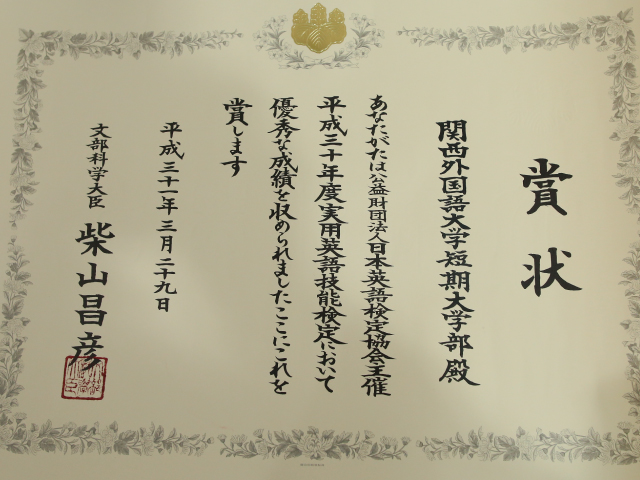 賞状
関西外国語大学短期大学部殿
あなたがたは公益財団法人日本英語検定協会主催
平成三十年度実用英語技能検定において
優秀な成績を収められましたここにこれを
賞します
平成三十一年三月二十九日
文部科学大臣
柴山昌彦